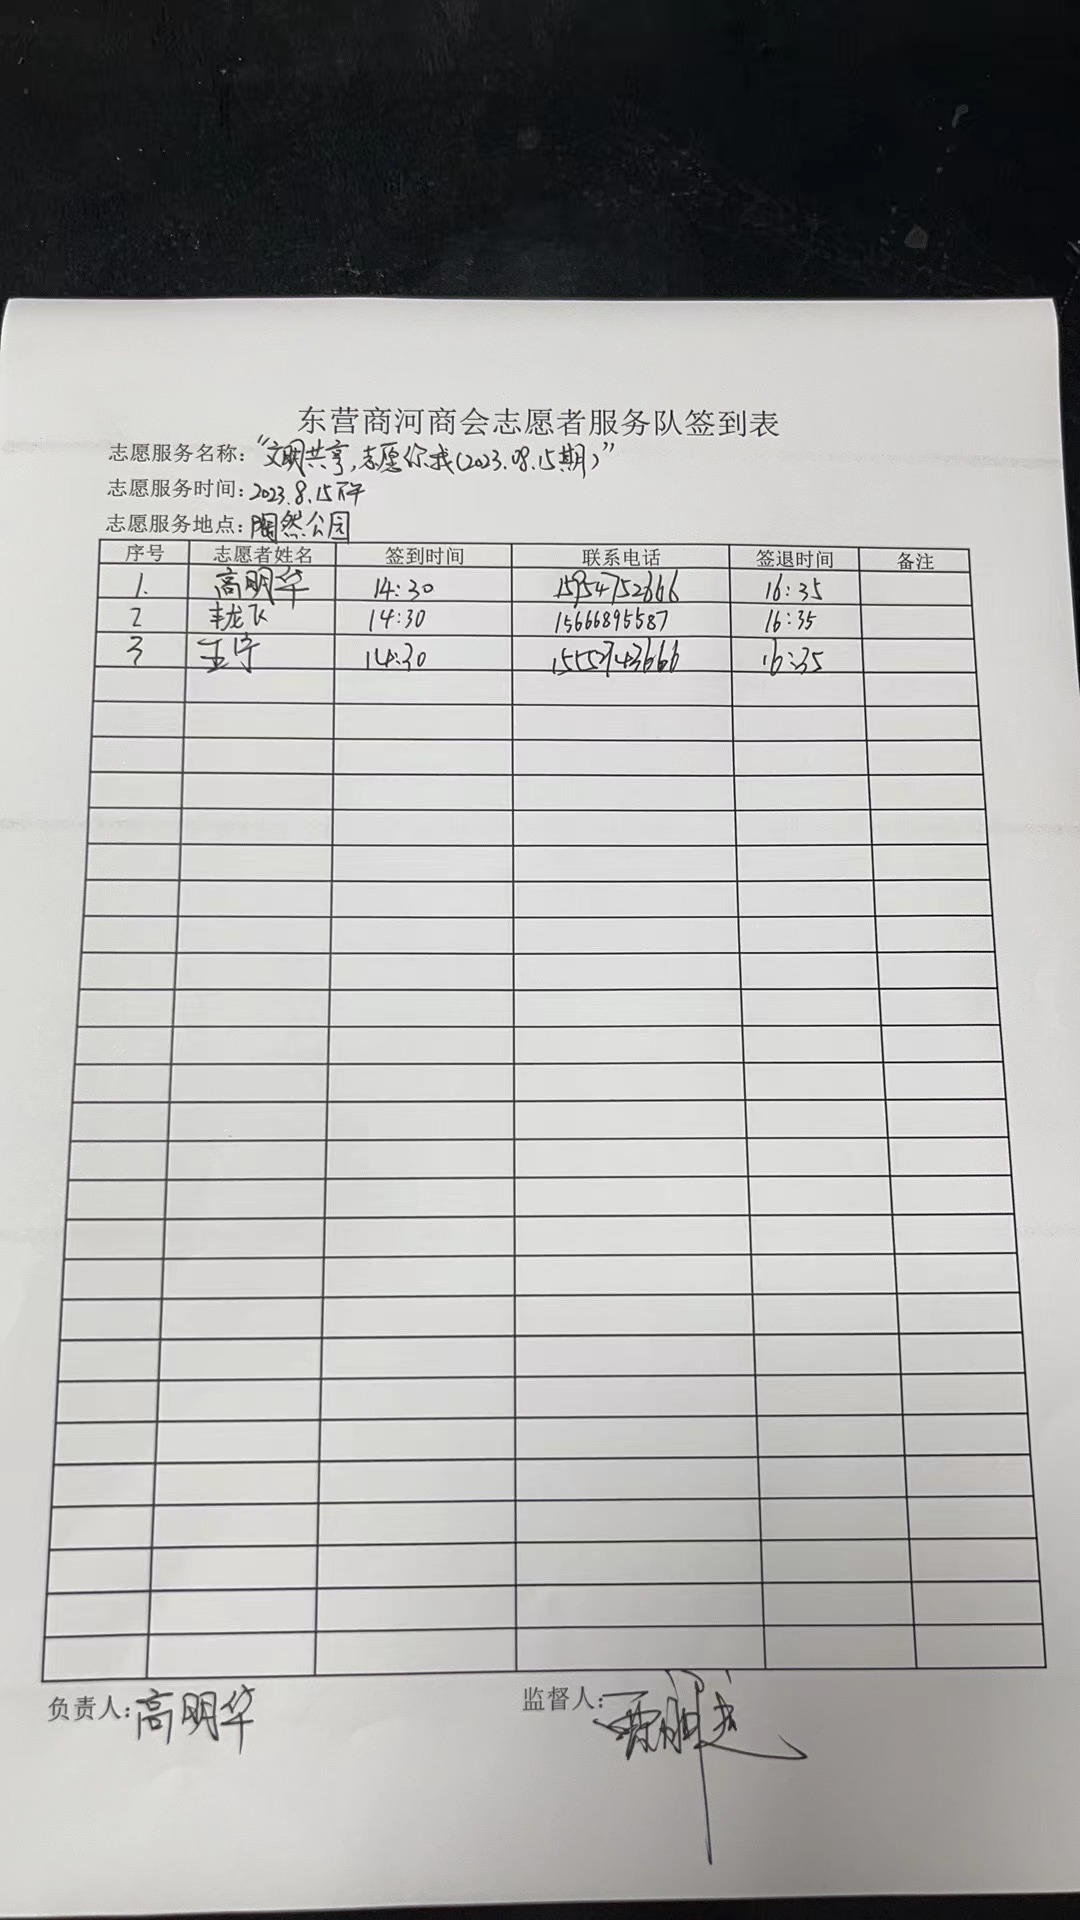 东营商河商会志愿者服务队签到表
志愿服务名称："文明共享,志愿你我(2023.08.15期)"
志愿服务时间：2023.8.15下午
志愿服务地点：陶然公园
序号 志愿者姓名 签到时间 联系电话 签退时间 备注
1. 高明华 14:30 15954752666 16:35
2 龙飞 14:30 15666895587 16:35
3 王宁 14:30 16:35
负责人：高明华 监督人：